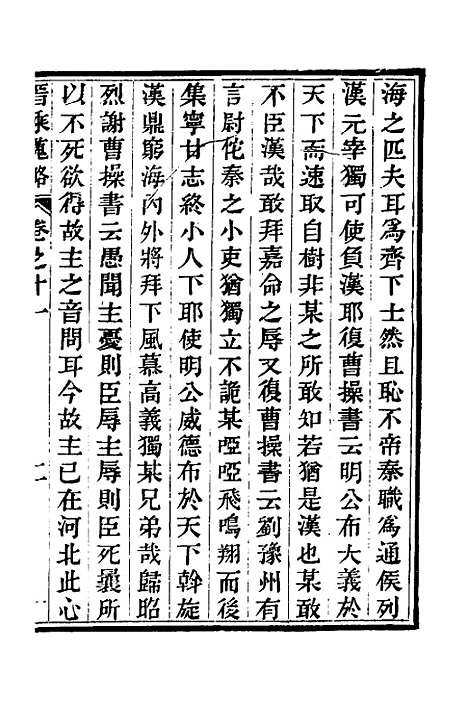 海之匹夫耳爲齊下士然且恥不帝秦職爲通侯列
漢元宰獨可使負漢耶復曹操書云明公布大義於
天下而速取自樹非某之所敢知若猶是漢也某敢
不臣漢哉敢拜嘉命之辱又復曹操書云劉豫州有
言尉佗秦之小吏猶獨立不詭某啞啞飛鳴翔而後
集寧甘志終小人下耶使明公威德布於天下斡旋
漢鼎窮海內外將拜下風慕高義獨某兄弟哉歸昭
烈謝曹操書云愚聞主憂則臣辱主辱則臣死曩所
以不死欲得故主之音問耳今故主已在河北此心
晉乘蒐略 卷之十一 二